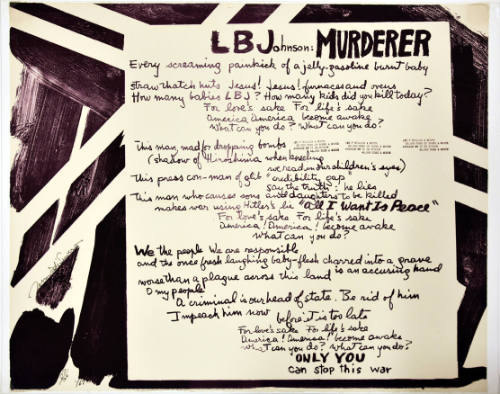 LBJohnson: MURDERER
Every screaming painkick of a jelly-gasoline burnt baby
straw thatch huts Jesus! Jesus! furnaces and ovens
How many babies LBJ? How many kids did you kill today?
For love's sake For life's sake
America America become awake
What can you do? What can you do?
This man, mad for dropping bombs
(shadow of Hiroshima when kneeling
we read in our children's eyes)
This press con-man of glib "credibility gap"
say the truth: he lies
This man who causes sons and daughters to be killed
makes war using Hitler's lie "All I Want Is Peace"
For love's sake For life's sake
America! America! become awake
what can you do?
We the people We are responsible
and the once fresh laughing baby-flesh charred into a grave
worse than a plague across this land is an accusing hand
O my people
A criminal is our head of state. Be rid of him
Impeach him now before it is too late
For love's sake For life's sake
America! America! become awake
what can you do? What can you do?
ONLY YOU
can stop this war